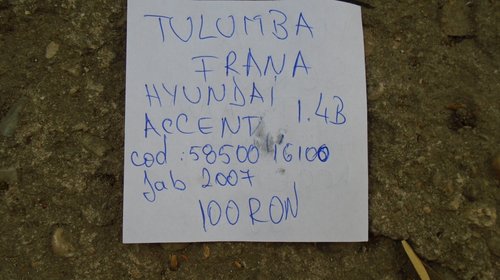 TULUMBA
FRANA
HYUNDAI
ACCENT 1.4B
cod : 58500 16100
fab 2007
100 RON